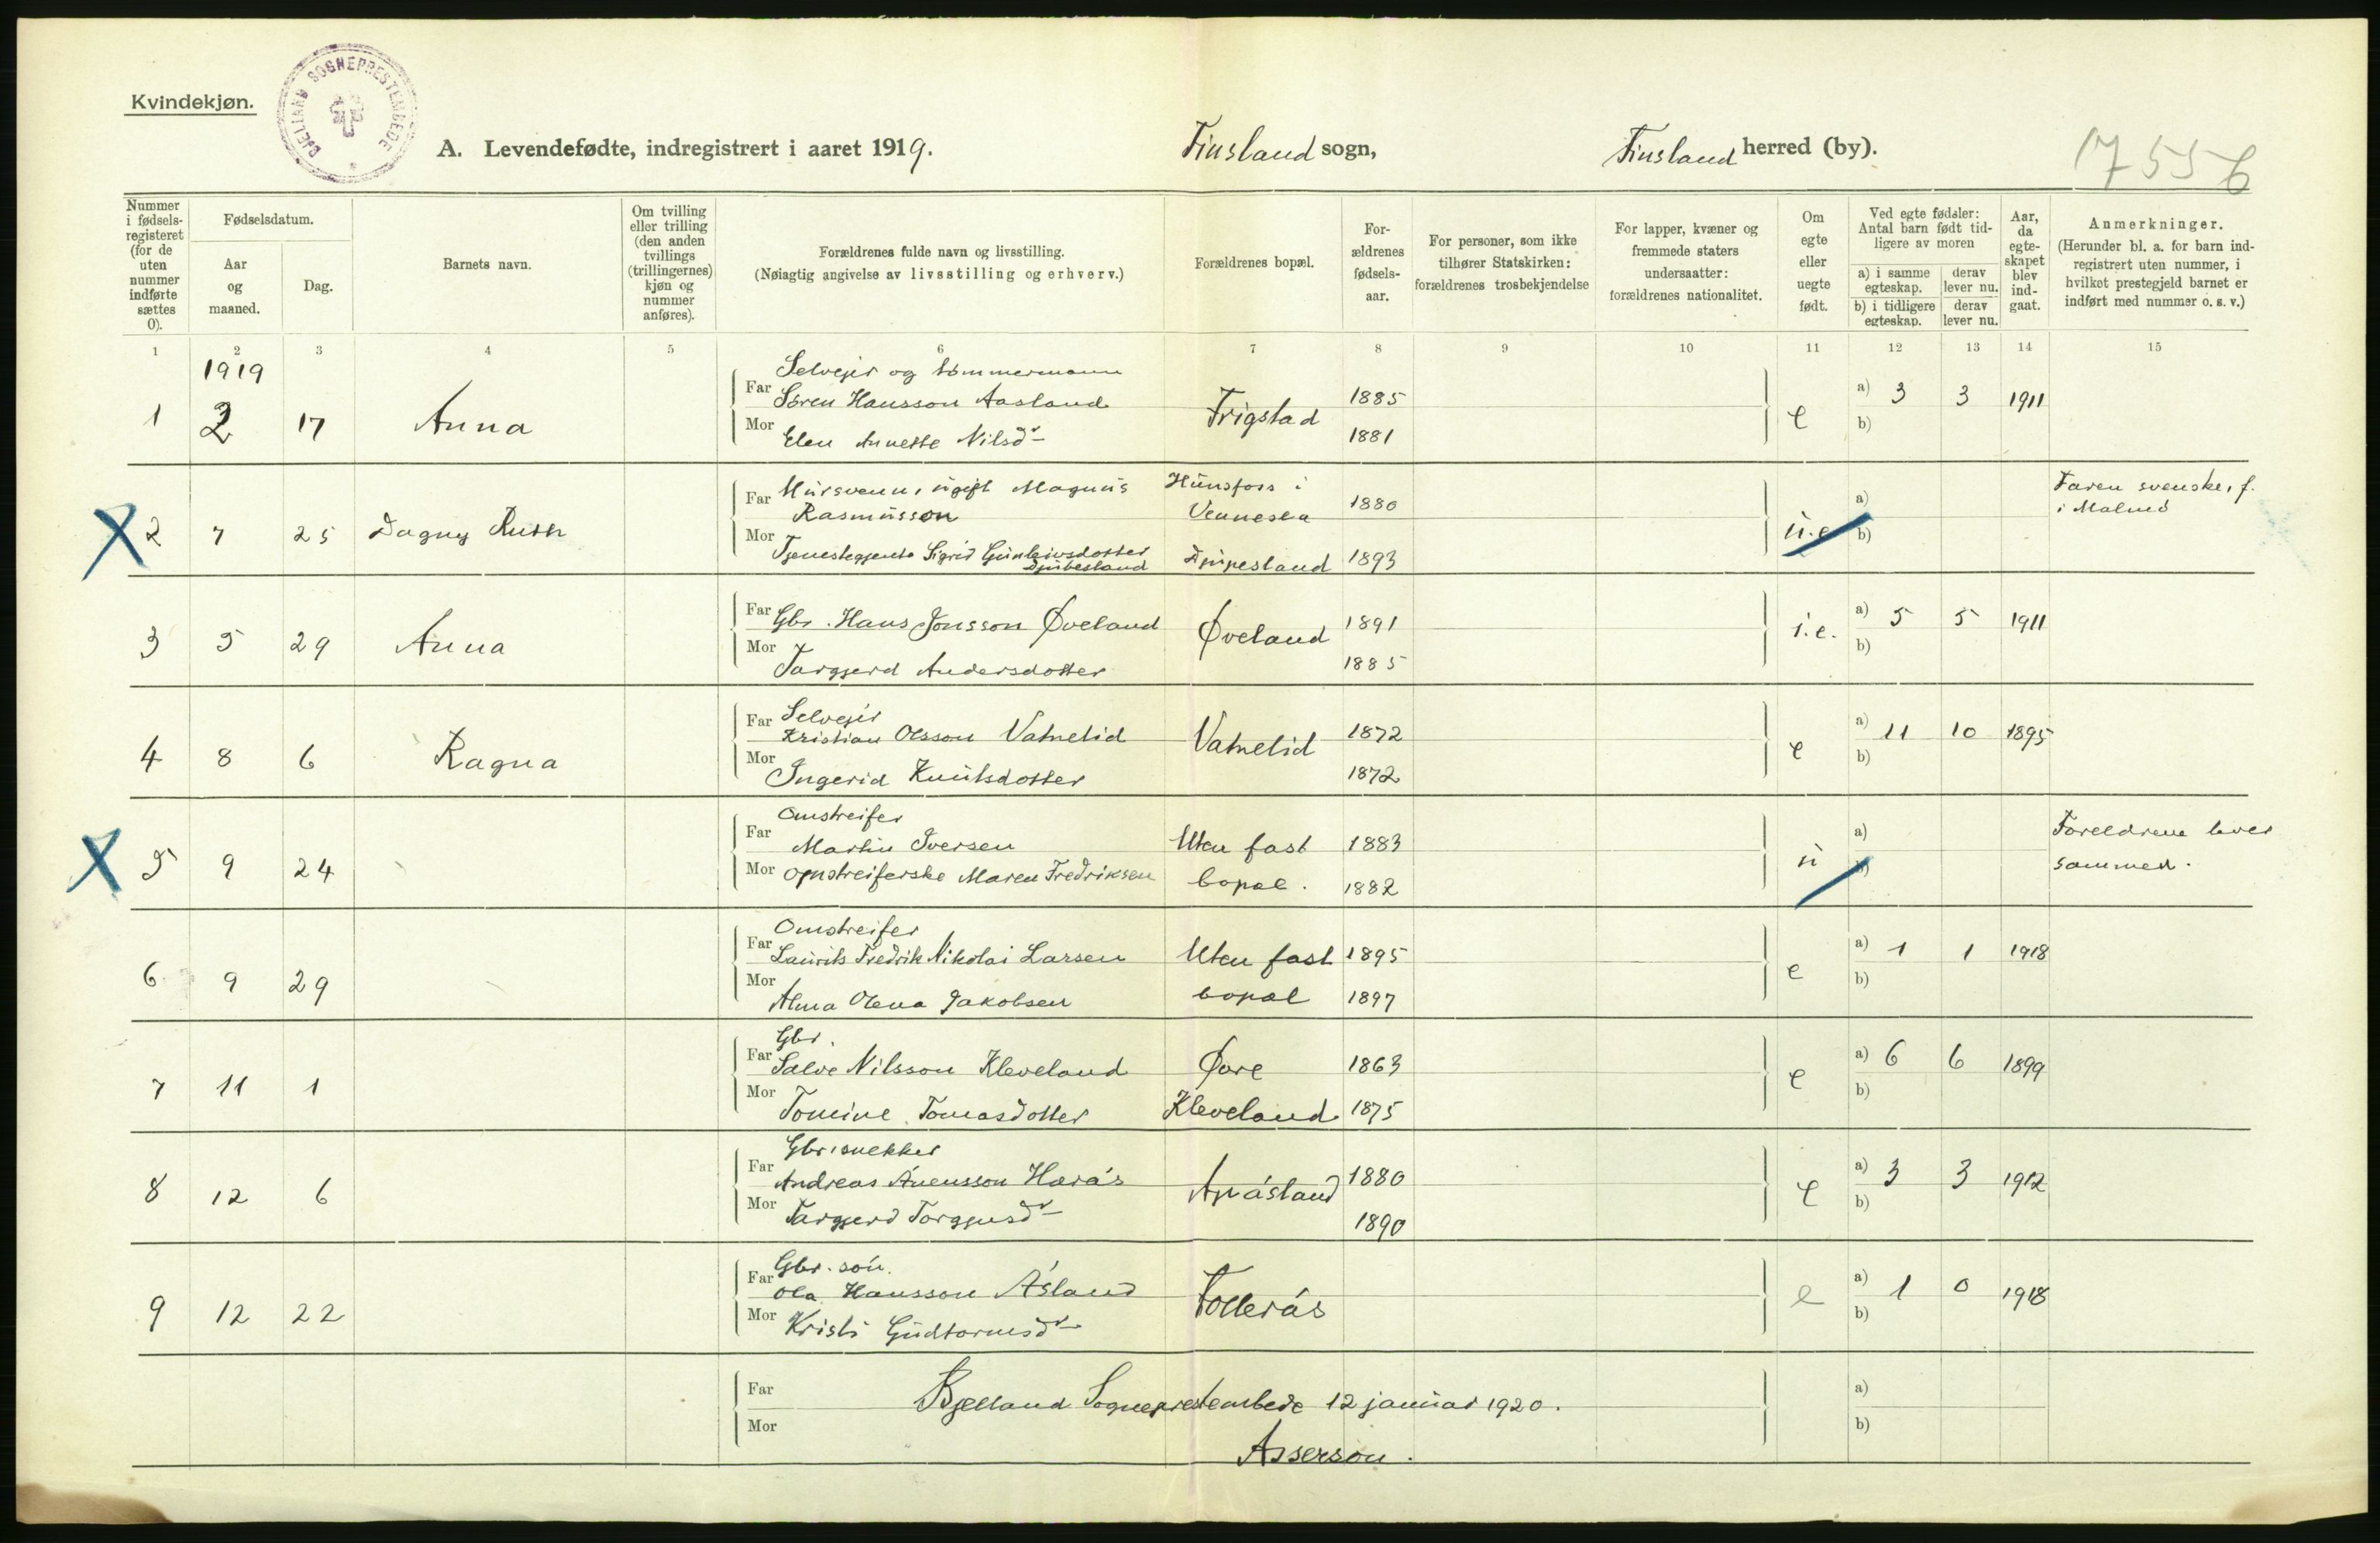 Kvindekjøn.
BJELLAND SOGNEPRESTEMBEDE
A. Levendefødte, indregistrert i aaret 1919.
Finsland sogn,
Finsland herred (by).
1755 6
Nummer i fødsels-registeret (for de uten nummer indførte sættes 0).
Fødselsdatum.
Aar og maaned.
Dag.
Barnets navn.
Om tvilling eller trilling (den anden tvillings (trillingernes) kjøn og nummer anføres).
Forældrenes fulde navn og livsstilling.
(Nøiagtig angivelse av livsstilling og erhverv.)
Forældrenes bopæl.
For-ældrenes fødsels-aar.
For personer, som ikke tilhører Statskirken: forældrenes trosbekjendelse
For lapper, kvæner og fremmede staters undersaatter: forældrenes nationalitet.
Om egte eller uegte født.
Ved egte fødsler: Antal barn født tid-ligere av moren
a) i samme egteskap.
derav lever nu.
b) i tidligere egteskap.
derav lever nu.
Aar, da egte-skapet blev ind-gaat.
Anmerkninger.
(Herunder bl. a. for barn ind-registrert uten nummer, i hvilket prestegjeld barnet er indført med nummer o. s. v.)
1 2 3 4 5 6 7 8 9 10 11 12 13 14 15
1919
Selvejer og tømmermann
1 2 17 Anna Far Søren Hansson Aasland Frigstad 1885 e a) 3 3 1911
Mor Elen Annette Nilsdr 1881 b)
2 7 25 Dagny Ruth Far Mursvenn, ugift Magnus Rasmusson Hunsfoss i Vennesla 1880 u.e a) Faren svenske, f. i Malmö
Mor Tjenestegjente Sigrid Gunleivsdotter Djubesland Djupesland 1893 b)
3 5 29 Anna Far Gbr. Hans Jonsson Øveland Øveland 1891 i.e. a) 5 5 1911
Mor Targjerd Andersdotter 1885 b)
Selvejer
4 8 6 Ragna Far Kristian Olsson Vatnelid Vatnelid 1872 e a) 11 10 1895
Mor Ingerid Knutsdotter 1872 b)
Omstreifer
5 9 24 Far Martin Iversen Uten fast 1883 u a) Foreldrene lever
Mor Omstreiferske Maren Fredriksen bopæl. 1882 b) sammen.
Omstreifer
6 9 29 Far Laurits Fredrik Nikolai Larsen Uten fast 1895 e a) 1 1 1918
Mor Alma Olena Jakobsen bopæl 1897 b)
Gbr.
7 11 1 Far Salve Nilsson Kleveland Øvre 1863 e a) 6 6 1899
Mor Tomine Tomasdotter Kleveland 1875 b)
Gbr, snekker
8 12 6 Far Andreas Ånensson Harås 1880 e a) 3 3 1912
Mor Targjerd Torgjusdr 1890 b)
Gbr. søn.
9 12 22 Far Ola Hansson Åsland Follerås e a) 1 0 1918
Mor Kristi Gudtormsdr b)
Far Bjelland Sogneprestembede 12 januar 1920. a)
Mor b)
Asserson.